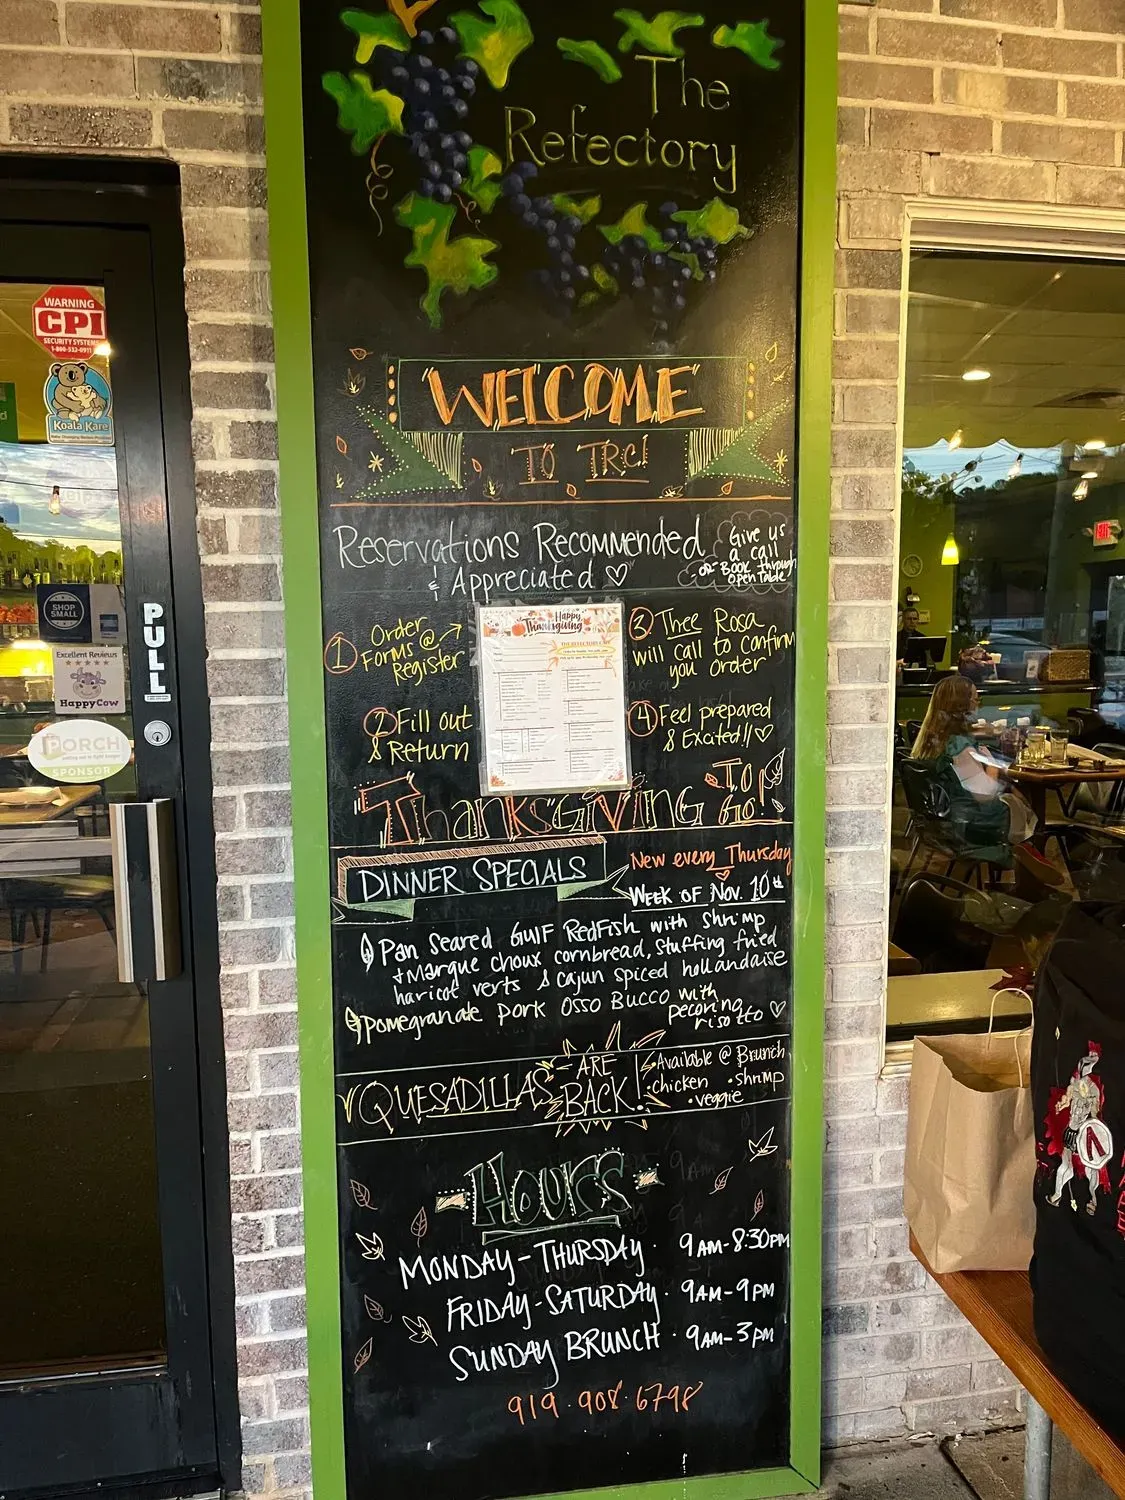 The
Refectory
WELCOME
TO TRC!
Reservations Recommended
& Appreciated ♡
Give us
a call
or Book through
open table!
① Order
Forms @
Register
② Fill out
& Return
Happy
Thanksgiving
③ Thee Rosa
will call to confirm
you order
④ Feel prepared
& Excited!! ♡
Thanksgiving To
Go!
DINNER SPECIALS
New every Thursday
WEEK OF Nov. 10th
Pan Seared Gulf RedFish with shrimp
+ Marque choux cornbread, stuffing fried
haricot verts & cajun spiced hollandaise
Pomegranate Pork Osso Bucco with
pecorino
risotto ♡
QUESADILLAS ARE
BACK!
Available @ Brunch
• chicken • shrimp
• veggie
HOURS
MONDAY - THURSDAY · 9AM - 8:30PM
FRIDAY - SATURDAY · 9AM - 9PM
SUNDAY BRUNCH · 9AM - 3PM
919 · 908 · 6798
WARNING
CPI
SECURITY SYSTEMS
1-800-332-0911
Koala Kare
SHOP
SMALL
Excellent Reviews
HappyCow
PORCH
SPONSOR
PULL
EXIT